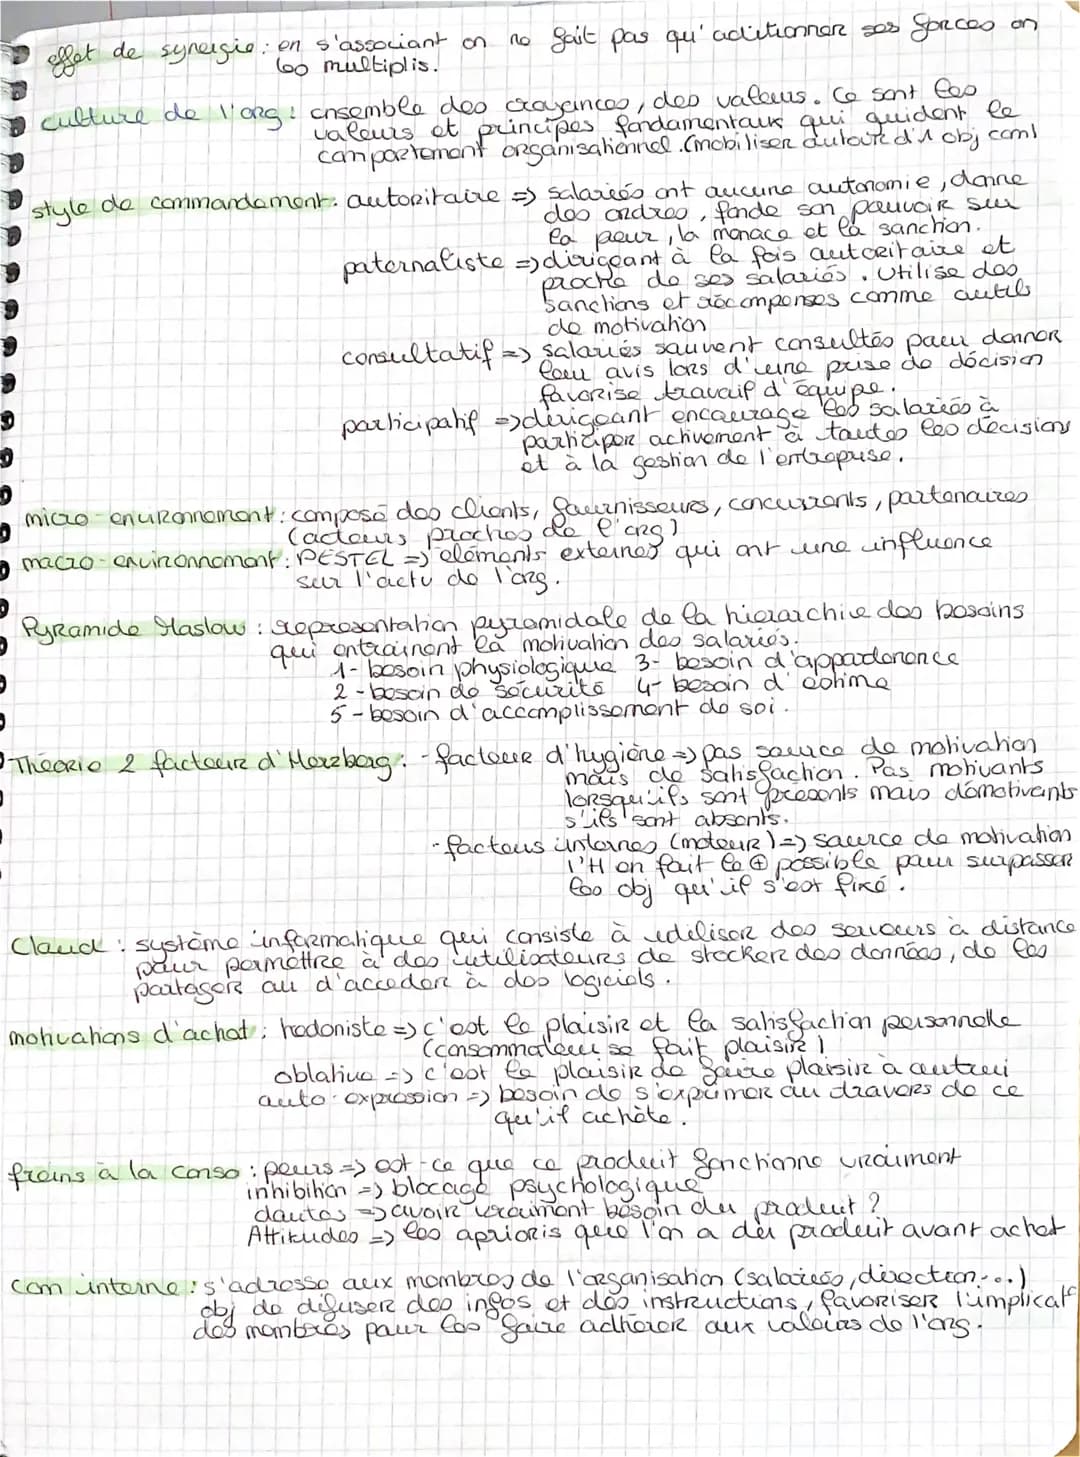 effet de synergie : en s'associant on ne fait pas qu'aditionner ses forces on
les multiplis.
culture de l'org : ensemble des croyances, des valeurs. Ce sont les
valeurs et principes fondamentaux qui guident le
comportement organisationnel. (mobiliser autour d'1 obj com)
style de commandement : autoritaire => salariés ont aucune autonomie, donne
des ordres, fonde son pouvoir sur
la peur, la menace et la sanction.
paternaliste => dirigeant à la fois autoritaire et
proche de ses salariés. Utilise des
sanctions et récompenses comme outils
de motivation
consultatif => salariés souvent consultés pour donner
leur avis lors d'une prise de décision
favorise travail d'équipe.
participatif => dirigeant encourage les salariés à
participer activement à toutes les décisions
et à la gestion de l'entreprise.
micro-environnement : composé des clients, fournisseurs, concurrents, partenaires
(acteurs proches de l'org)
macro-environnement : PESTEL => éléments externes qui ont une influence
sur l'actv de l'org.
Pyramide Maslow : représentation pyramidale de la hiérarchie des besoins
qui entrainent la motivation des salariés.
1- besoin physiologique 3- besoin d'appartenance
2- besoin de sécurité 4- besoin d'estime
5- besoin d'accomplissement de soi.
Théorie 2 facteur d'Herzberg : - facteur d'hygiène => pas source de motivation
mais de satisfaction. Pas motivants
lorsqu'ils sont présents mais démotivants
s'ils sont absents.
- facteurs internes (moteur) => source de motivation
l'H en fait le ⊕ possible pour surpasser
les obj qu'il s'est fixé.
Cloud : système informatique qui consiste à utiliser des serveurs à distance
pour permettre à des utilisateurs de stocker des données, de les
partager ou d'acceder à des logiciels.
motivations d'achat : hedoniste => c'est le plaisir et la satisfaction personnelle
(consommateur se fait plaisir)
oblative => c'est le plaisir de faire plaisir à autrui
auto-expression => besoin de s'exprimer au travers de ce
qu'il achète.
freins à la conso : peurs => est-ce que ce produit fonctionne vraiment
inhibition => blocage psychologique
doutes => avoir vraiment besoin du produit ?
Attitudes => les aprioris que l'on a du produit avant achat
com interne : s'adresse aux membres de l'organisation (salariés, direction...)
obj de difuser des infos et des instructions, favoriser l'implicat°
des membres pour les faire adhérer aux valeurs de l'org.